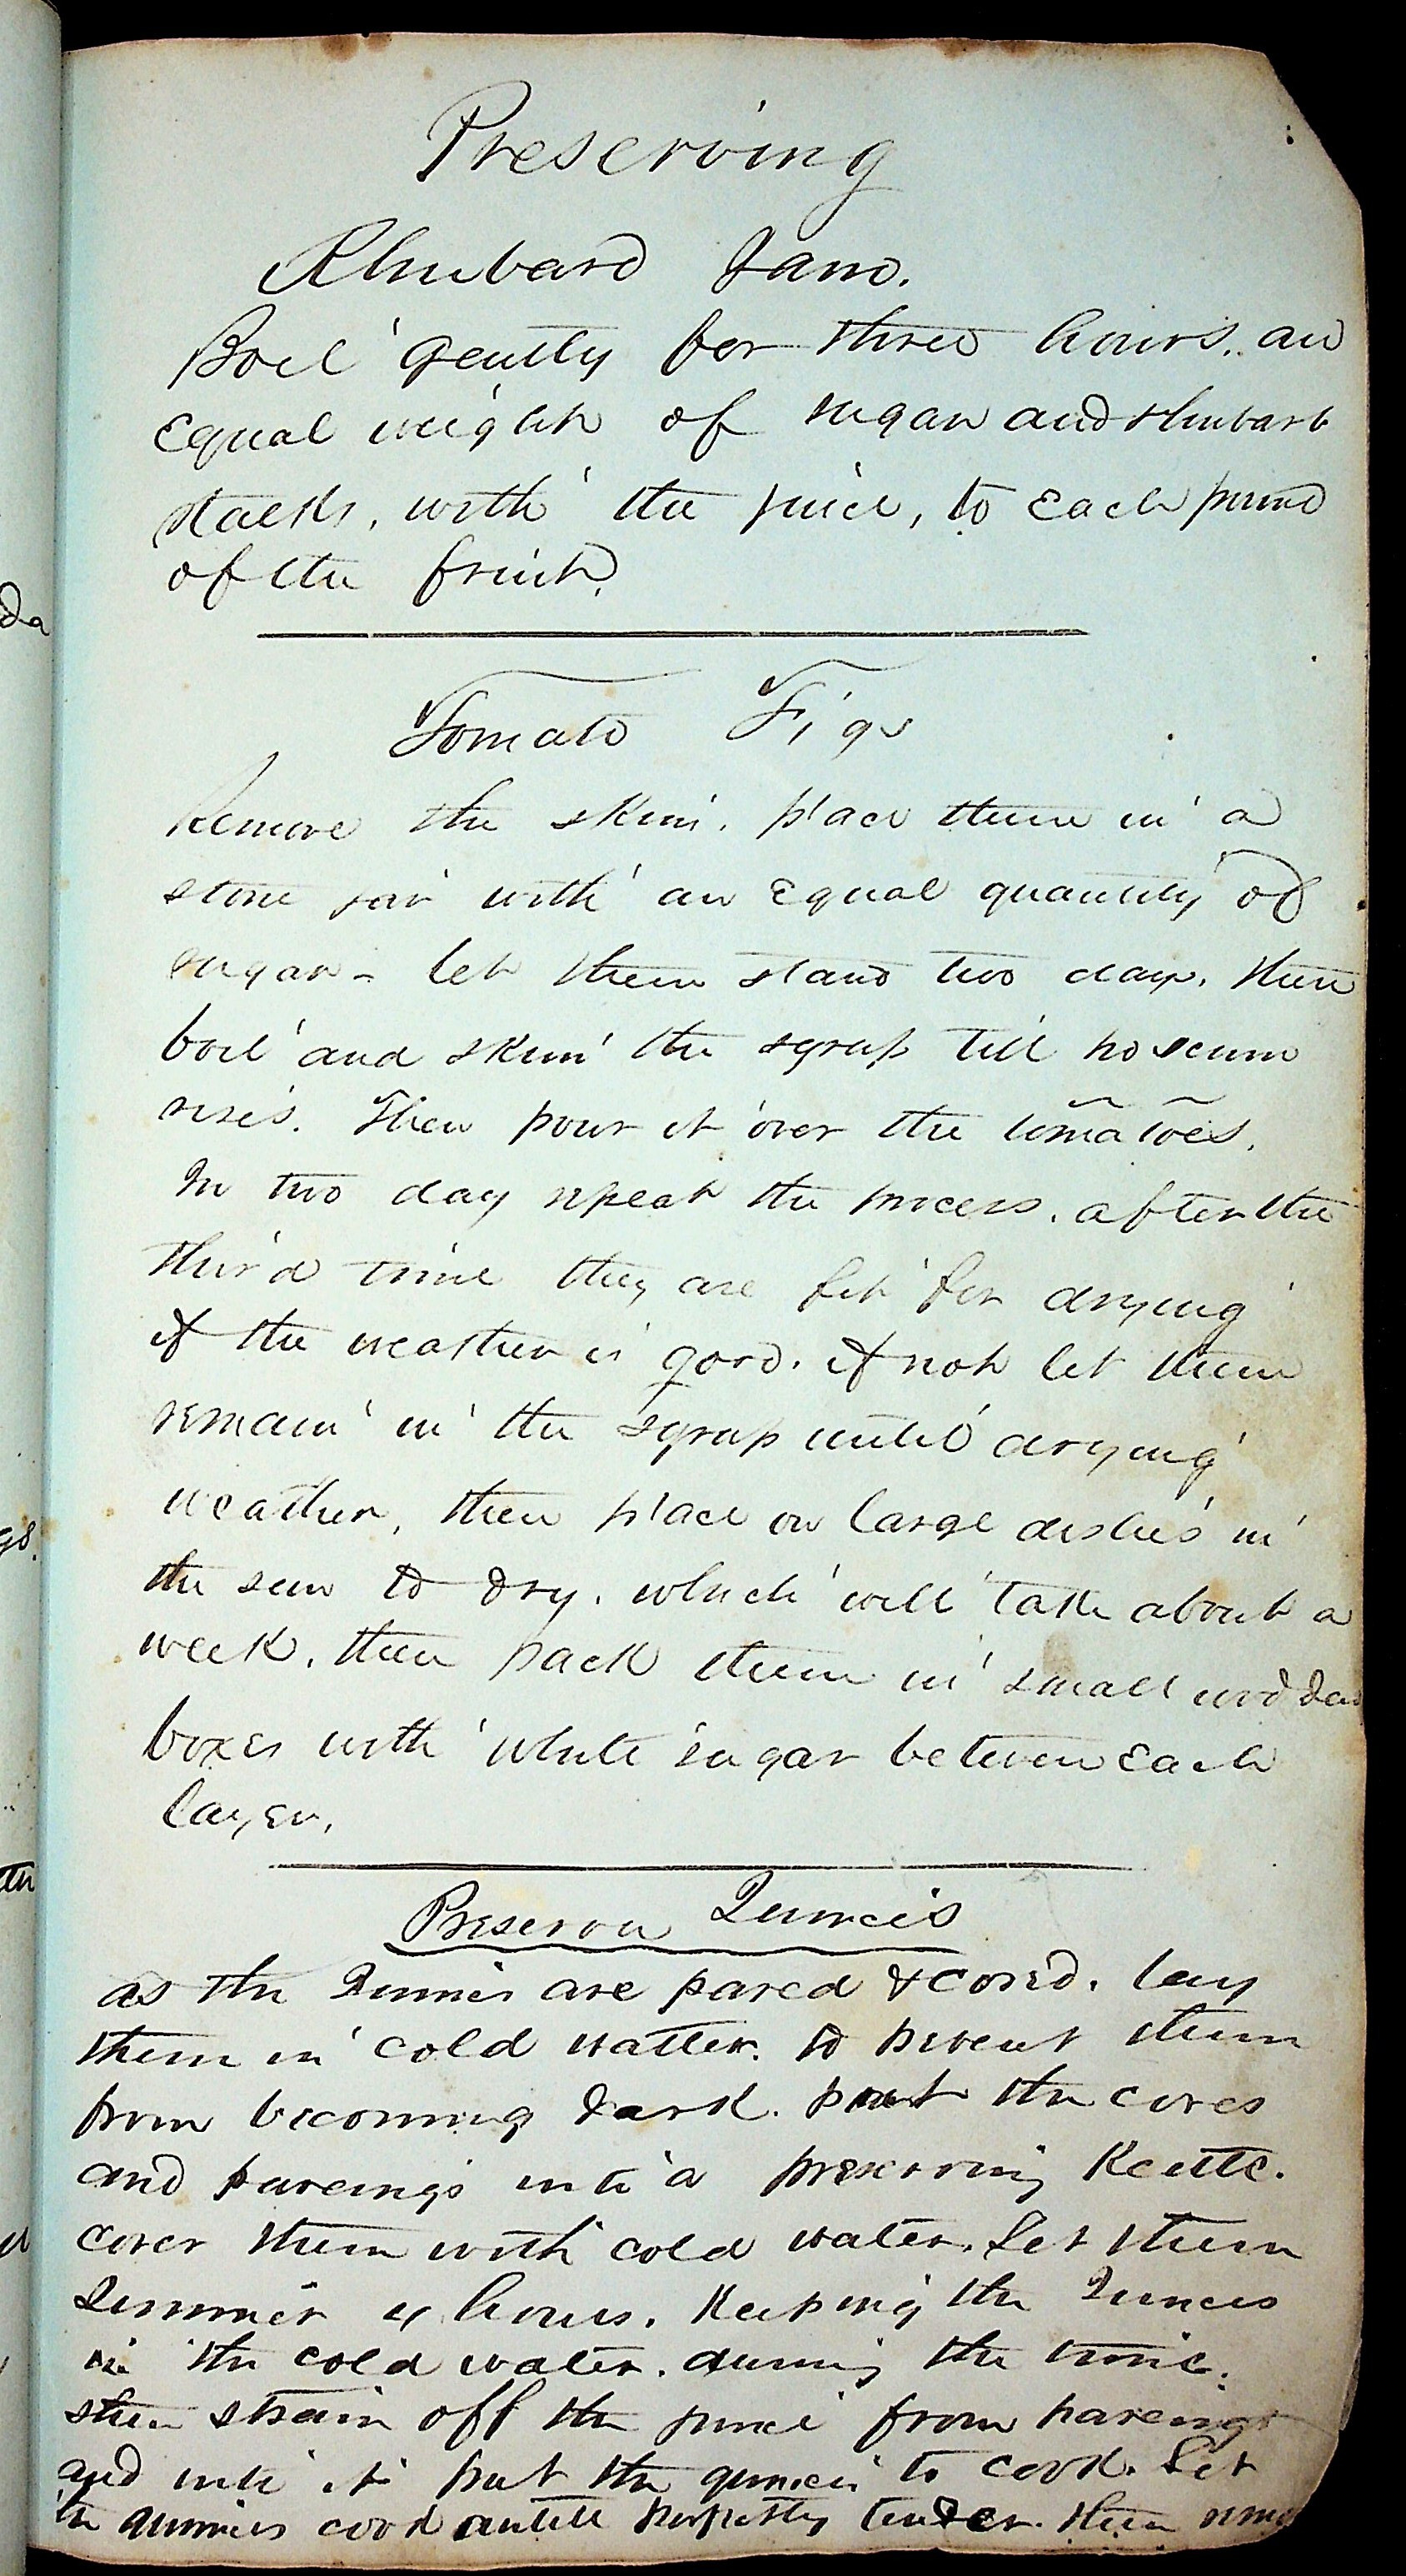 Preserving
Rhubard Jam.
Boil gently for three hours. an
equal weight of sugar and rhubarb
stalks, with the juice, to each pound
of the fruit.
Tomato Figs
Remove the skin. place them in a
stone jar with an equal quantity of
sugar - let them stand two days. then
boil and skim the syrup till no scum
rises. Then pour it over the tomatoes.
In two day repeat the process. after the
third time they are fit for drying
if the weather is good. if not let them
remain in the syrup until drying
weather, then place on large dishes in
the sun to dry. which will take about a
week. then pack them in small wodden
boxes with white sugar between each
layer.
Preserve Quinces
as the Quinces are pared & cored. lay
them in cold watter. to prevent them
from becoming dark. put the cores
and pareings into a preserving Kettle.
cover them with cold water. Let them
Simmer 4 hours. Keeping the Quinces
in the cold water. during the time.
then strain off the juice from pareings
and into it put the quinces to cook. Let
the quinces cook untill perfectly tender. then
da
gs.